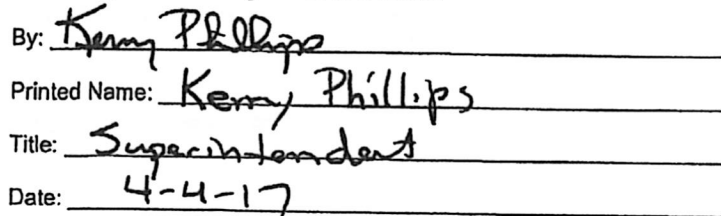 By: Kerry Phillips
Printed Name: Kerry Phillips
Title: Superintendent
Date: 4-4-17